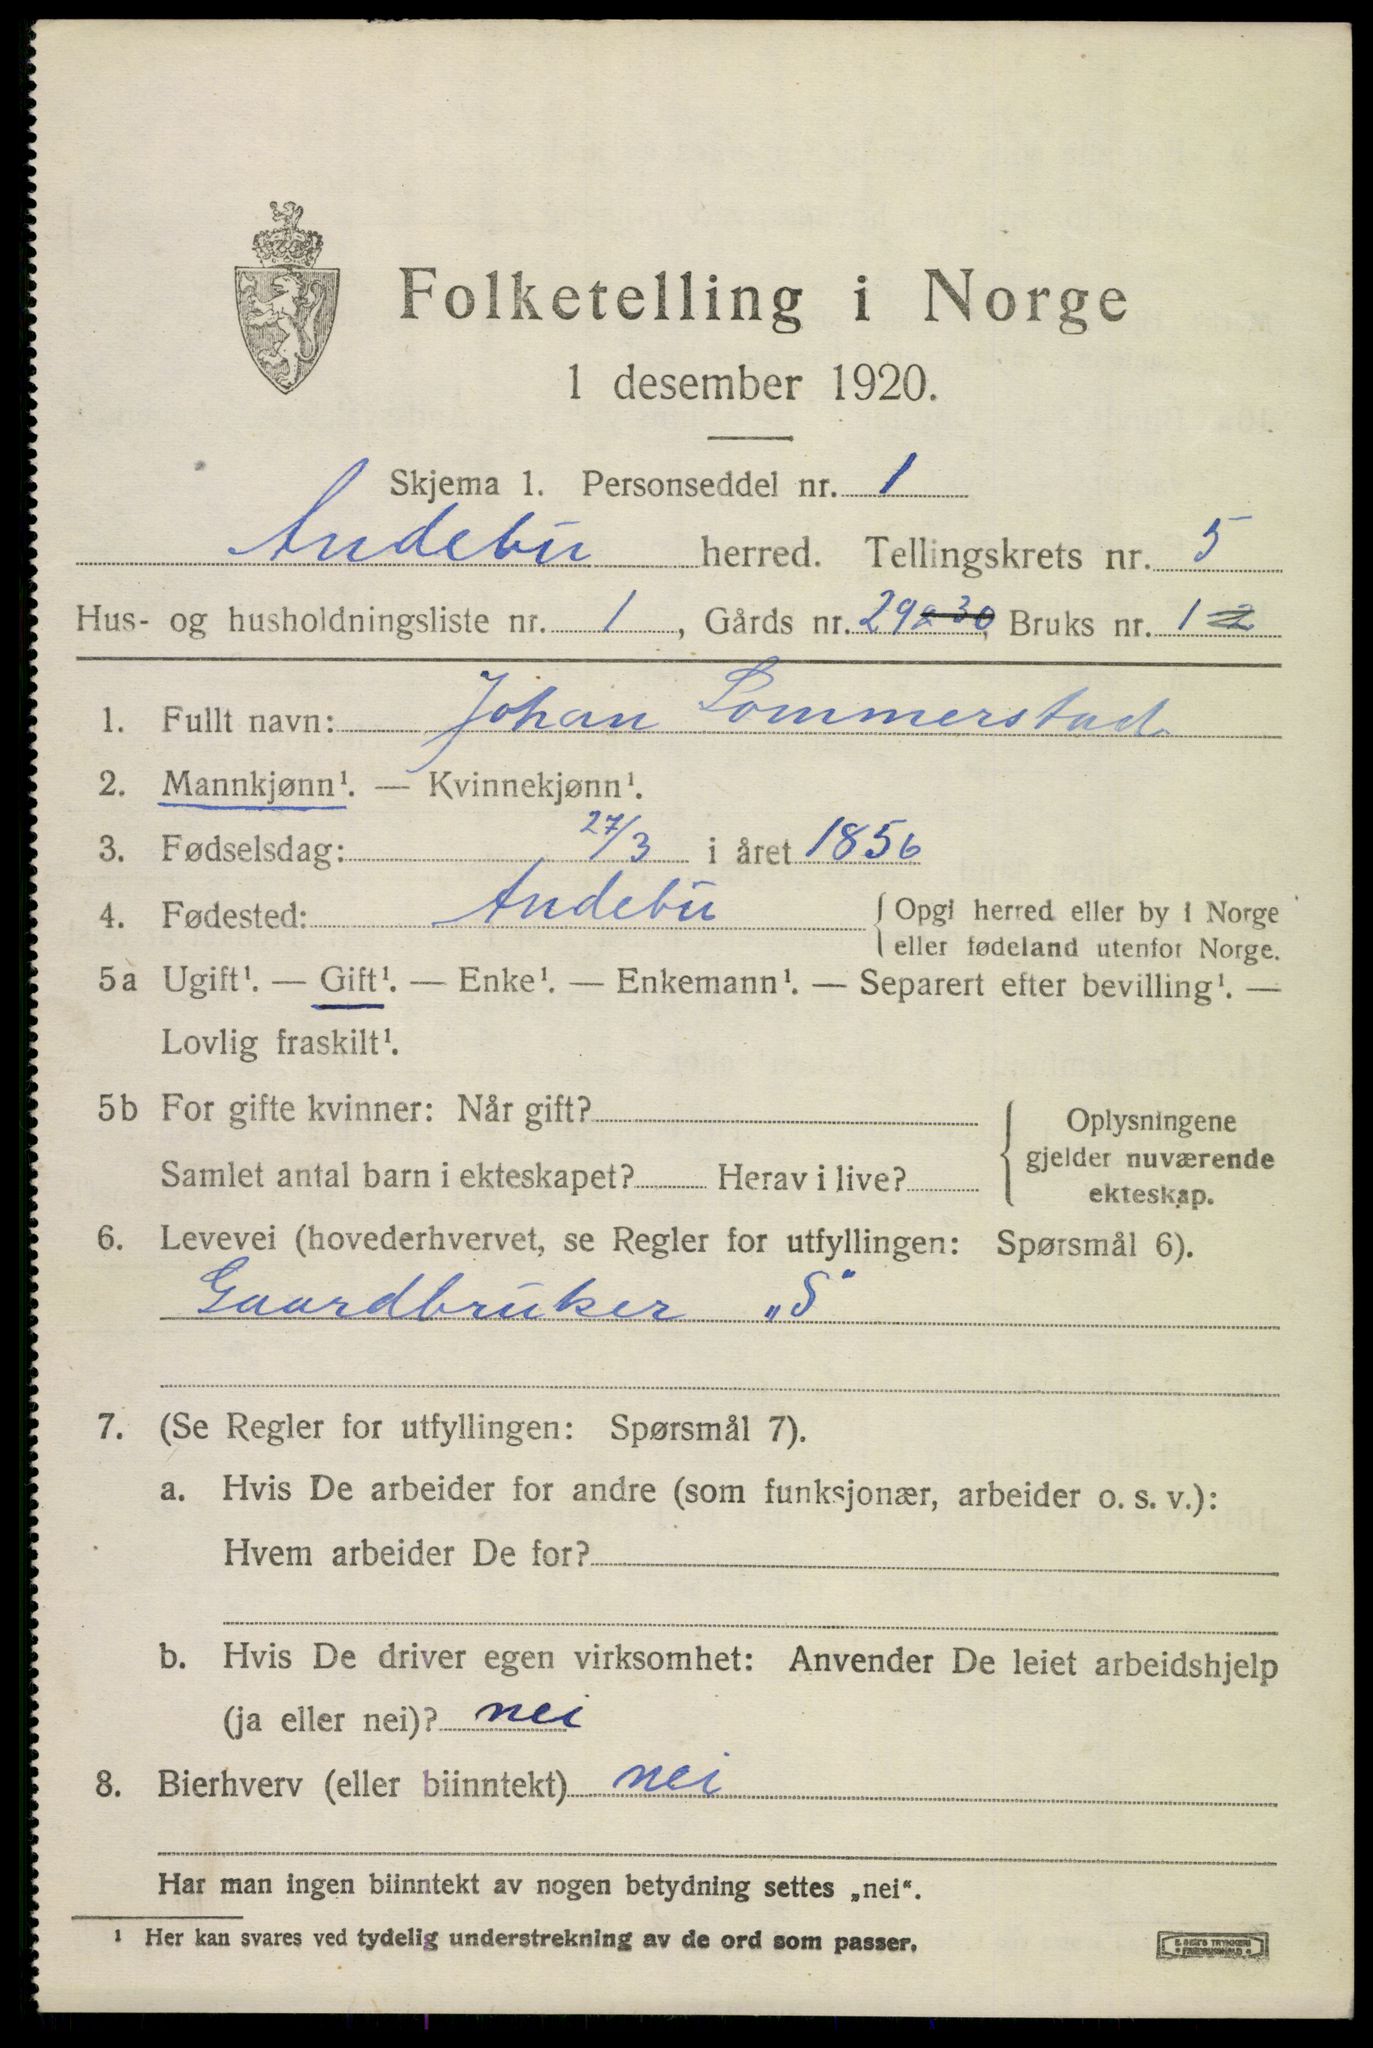 Folketelling i Norge
1 desember 1920.
Skjema 1. Personseddel nr. 1
Andebu herred. Tellingskrets nr. 5
Hus- og husholdningsliste nr. 1, Gårds nr. 29 & 30 Bruks nr. 1 2
1. Fullt navn: Johan Sommerstad
2. Mannkjønn¹. — Kvinnekjønn¹.
3. Fødselsdag: 27/3 i året 1856
4. Fødested: Andebu {Opgi herred eller by i Norge
eller fødeland utenfor Norge.
5a Ugift¹. — Gift¹. — Enke¹. — Enkemann¹. — Separert efter bevilling¹. —
Lovlig fraskilt¹.
5b For gifte kvinner: Når gift? Oplysningene
gjelder nuværende
Samlet antal barn i ekteskapet? Herav i live? ekteskap.
6. Levevei (hovederhvervet, se Regler for utfyllingen: Spørsmål 6).
Gaardbruker „S"
7. (Se Regler for utfyllingen: Spørsmål 7).
a. Hvis De arbeider for andre (som funksjonær, arbeider o. s. v.):
Hvem arbeider De for?
b. Hvis De driver egen virksomhet: Anvender De leiet arbeidshjelp
(ja eller nei)? nei
8. Bierhverv (eller biinntekt) nei
Har man ingen biinntekt av nogen betydning settes „nei".
¹ Her kan svares ved tydelig understrekning av de ord som passer.